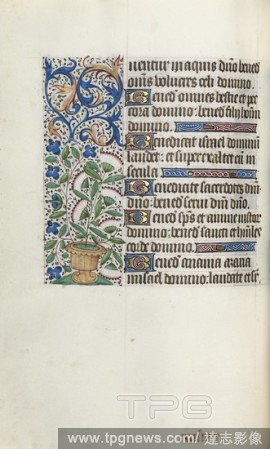 uentur in aquis dño bened
om̃s volucres celi domino.
Bened omnes bestie et pec
cora domino: bened filij hoım
domino.
Benedicat israel dominũ
laudet: et superexaltet eũ in
secula.
Benedicite sacerdotes dñi
dño: bened serui dñi dño.
Bened sp̃s et anime iustor
domino: bened sancti et hũiles
corde domino.
Bened anania azaria
misael domino: laudate et sr̃
TPG
www.tpgnews.com | 達志影像